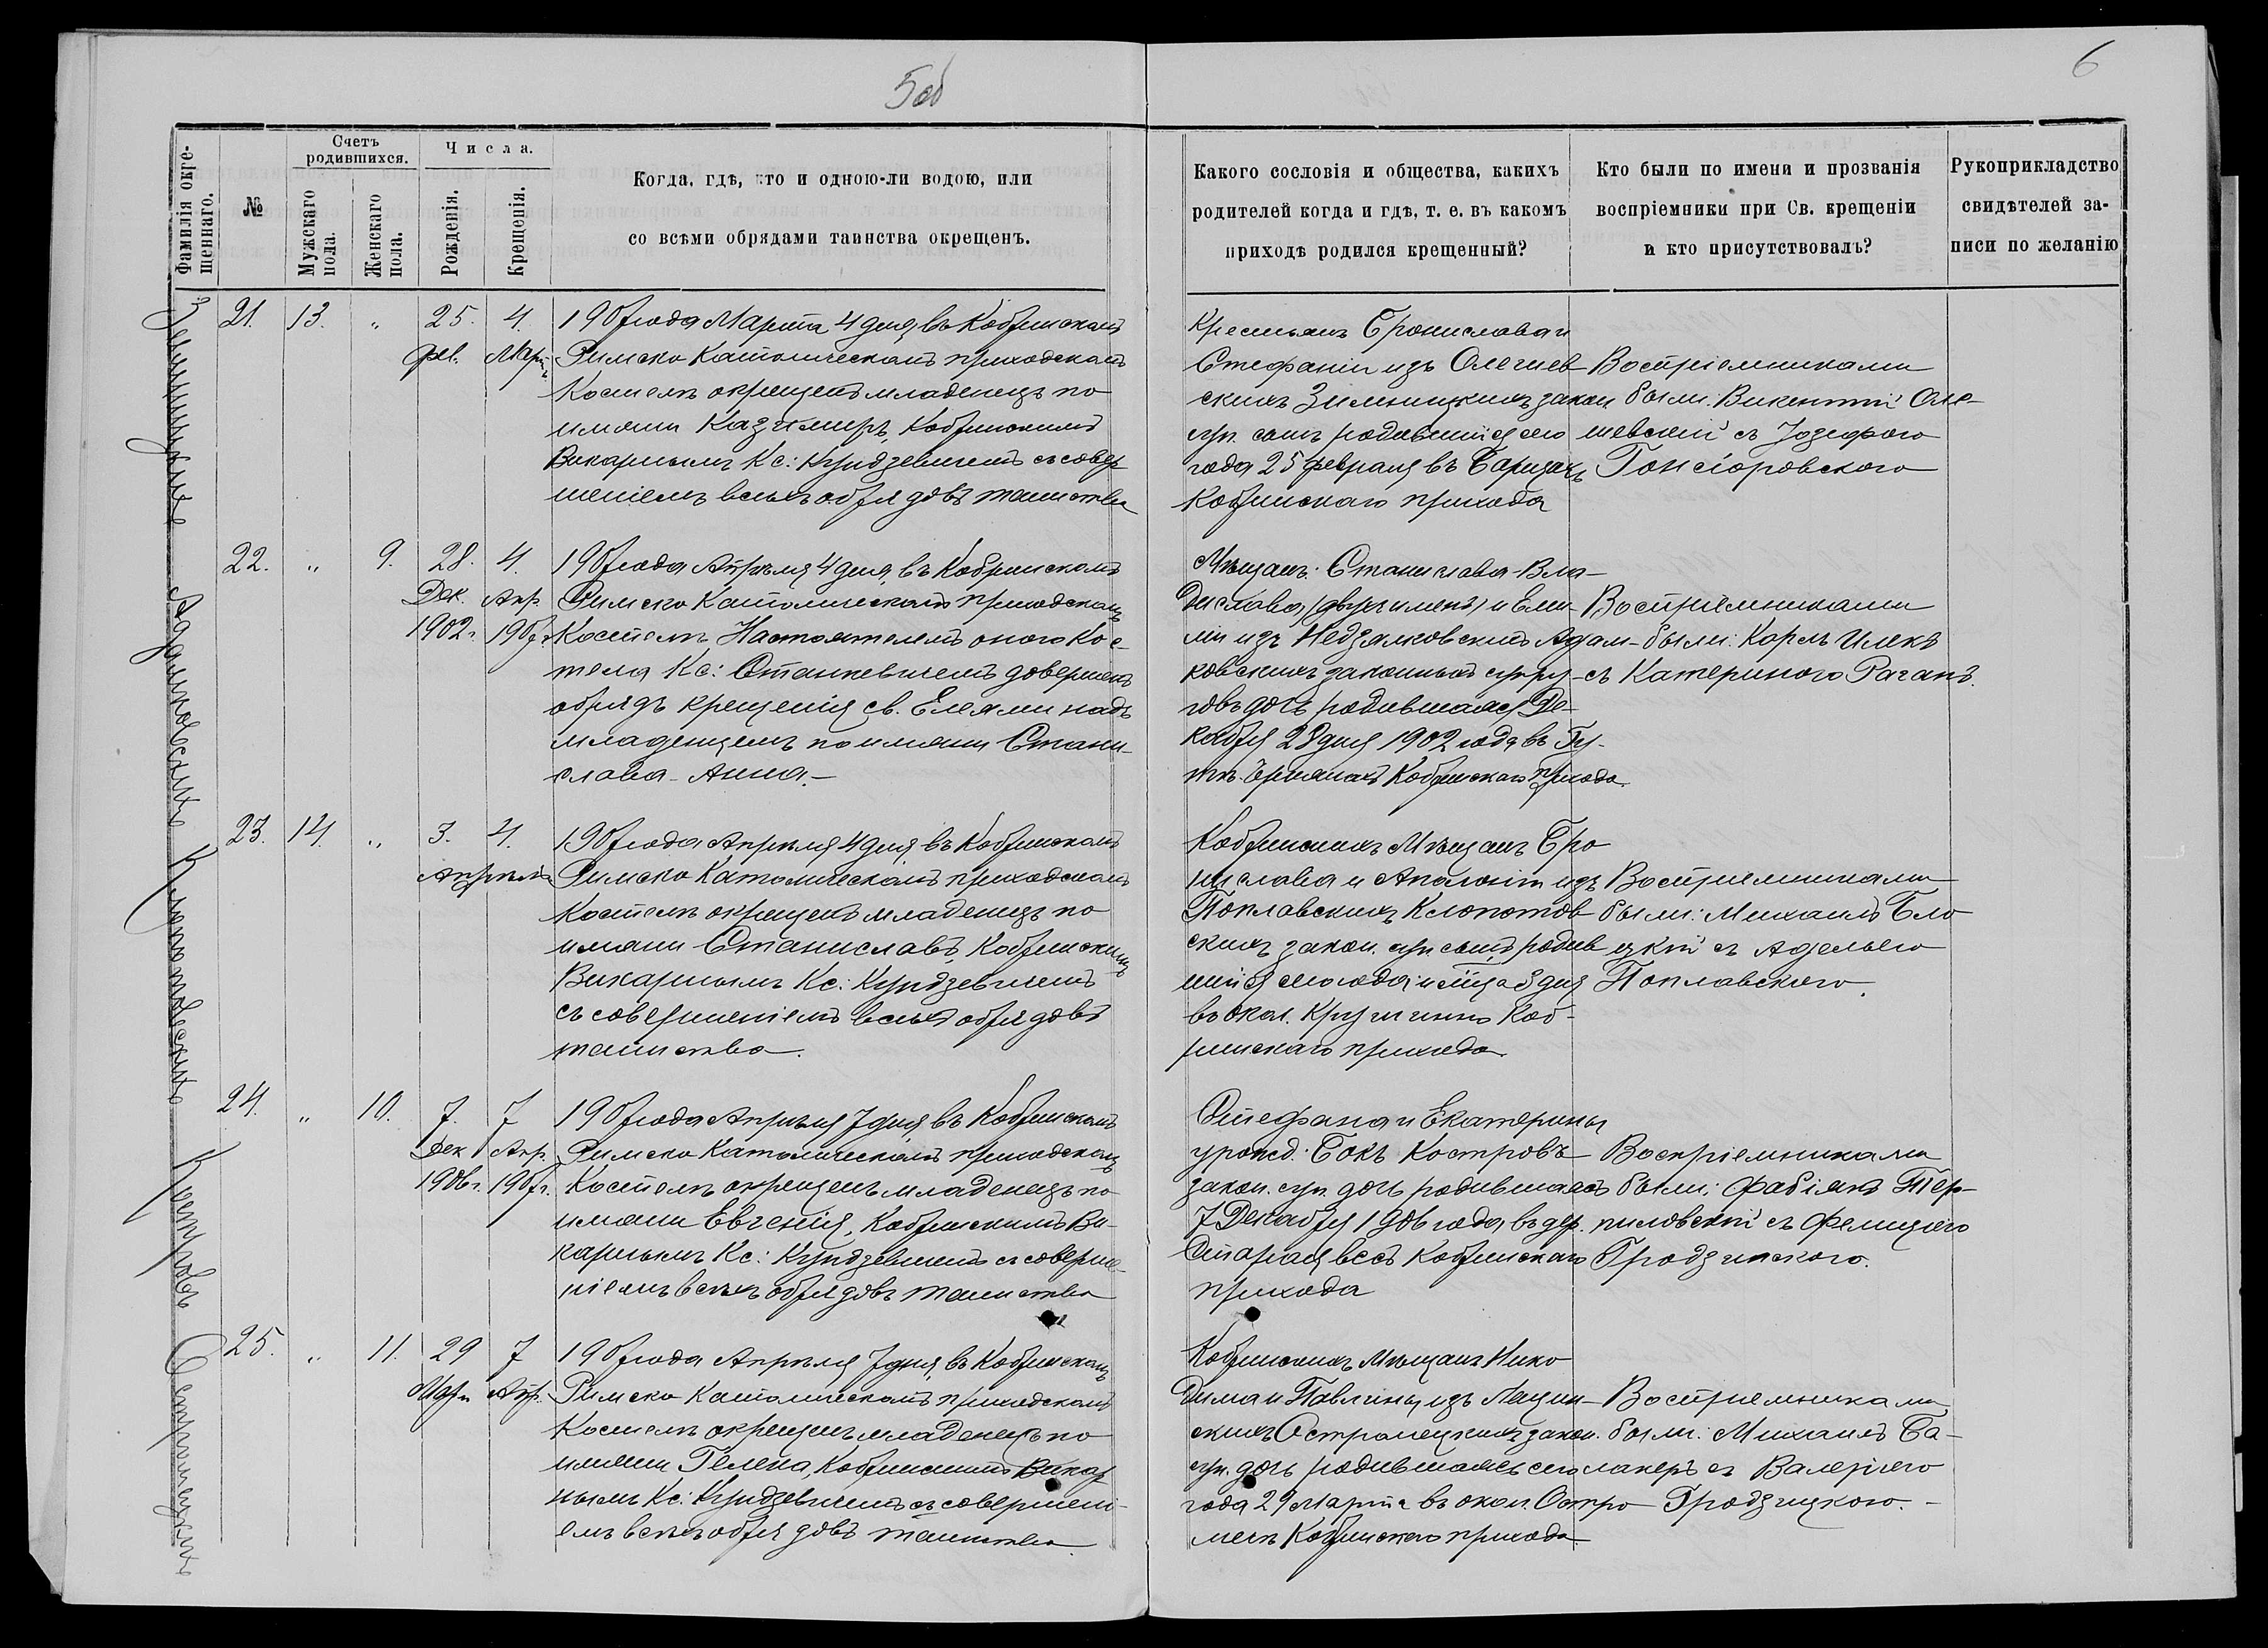 5об
6
Фамилія окре-
щеннаго.
№
Счетъ
родившихся.
Мужскаго
пола.
Женскаго
пола.
Числа.
Рожденія.
Крещенія.
Когда, гдѣ, кто и одною-ли водою, или
со всѣми обрядами таинства окрещенъ.
Какого сословія и общества, какихъ
родителей когда и гдѣ, т. е. въ какомъ
приходѣ родился крещенный?
Кто были по имени и прозванія
воспріемники при Св. крещеніи
и кто присутствовалъ?
Рукоприкладство
свидѣтелей за-
писи по желанію
21. 13. „ 25. 4.
Фев. Март.
1907 года Марта 4 дня, въ Кобринскомъ
Римско Католическомъ приходскомъ
Костелѣ окрещенъ младенецъ по
имени Казимиръ, Кобринскимъ
Викарнымъ Кс: Кундзевичемъ съ совер
шеніемъ всѣхъ обрядовъ таинства
Крестьянъ Бронислава и
Стефаніи изъ Олешев
скихъ Зимницкихъ закон.
суп. сынъ родившійся сего
года 25 февраля въ
Кобринскаго прихода
Воспріемниками
были: Викентій Оле-
шевскій съ Юзефою
Гонсіоровскою
Адамковскихъ
22. „ 9. 28. 4.
Дек. Апр.
1902 г. 1907 г.
1907 года Апрѣля 4 дня, въ Кобринскомъ
Римско Католическомъ приходскомъ
Костелѣ Настоятелемъ оного Кос-
тела Кс: Станкевичемъ довершенъ
обрядъ крещенія св. Елеями надъ
младенцемъ по имени Стани-
слава-Анна.-
Мѣщанъ: Станислава-Вла-
дислава (двухъ именъ) и Еми-
ліи изъ Недзялковскихъ Адам-
ковскихъ законныхъ супру-
говъ дочь родившаяся Де-
кабря 28 дня 1902 года въ Гу-
Кобринскаго прихода.
Воспріемниками
были: Кароль
съ Катериною Рагань.
Клопотовскихъ
23. 14. „ 3. 4.
Апрѣля
1907 года Апрѣля 4 дня, въ Кобринскомъ
Римско Католическомъ приходскомъ
Костелѣ окрещенъ младенецъ по
имени Станиславъ, Кобринскимъ
Викарнымъ Кс: Кундзевичемъ
съ совершеніемъ всѣхъ обрядовъ
таинства.
Кобринскихъ Мѣщанъ Бро
нислава и Аполоніи изъ
Поплавскихъ Клопотов
скихъ закон. суп сынъ, родив
шійся сего года и мѣца 3 дня
въ окол. Коб-
ринскаго прихода
Воспріемниками
были: Михаилъ Бло
цкій съ Аделью
Поплавского.
Костровъ
24. „ 10. 7. 7
Дек Апр
1906 г. 1907 г.
1907 года Апрѣля 7 дня, въ Кобринскомъ
Римско Католическомъ приходскомъ
Костелѣ окрещенъ младенецъ по
имени Евгенія, Кобринскимъ Ви-
карнымъ Кс: Кундзевичемъ съ соверше-
ніемъ всѣхъ обрядовъ таинства
Стефана и Екатерины
урожд. Бокъ Костровъ
закон. суп. дочь родившаяся
7 Декабря 1906 года въ дер.
Старая весь Кобринскаго
прихода
Воспріемниками
были: Фабіянъ Тер-
пиловскій съ Фелиціею
Гродзинскою.
Остромецкихъ
25. „ 11. 29 7
Март Апр.
1907 года Апрѣля 7 дня, въ Кобринскомъ
Римско Католическомъ приходскомъ
Костелѣ окрещенъ младенецъ по
имени Гелена, Кобринскимъ Викар
нымъ Кс: Кундзевичемъ съ совершені-
емъ всѣхъ обрядовъ таинства
Кобринскихъ Мѣщанъ Нико
дима и Павлины изъ Лацин-
скихъ Остромецкихъ закон.
суп. дочь родившаяся сего
года 29 Марта въ окол Остро-
мечь Кобринскаго прихода
Воспріемниками
были: Михаилъ Ба-
лакеръ съ Валеріею
Гродзицкою.-